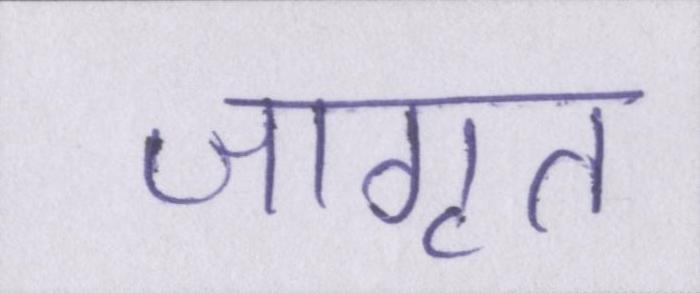 जागृत